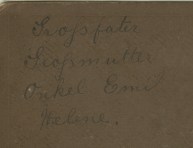 Großvater
Großmutter
Onkel Emil
Helene.